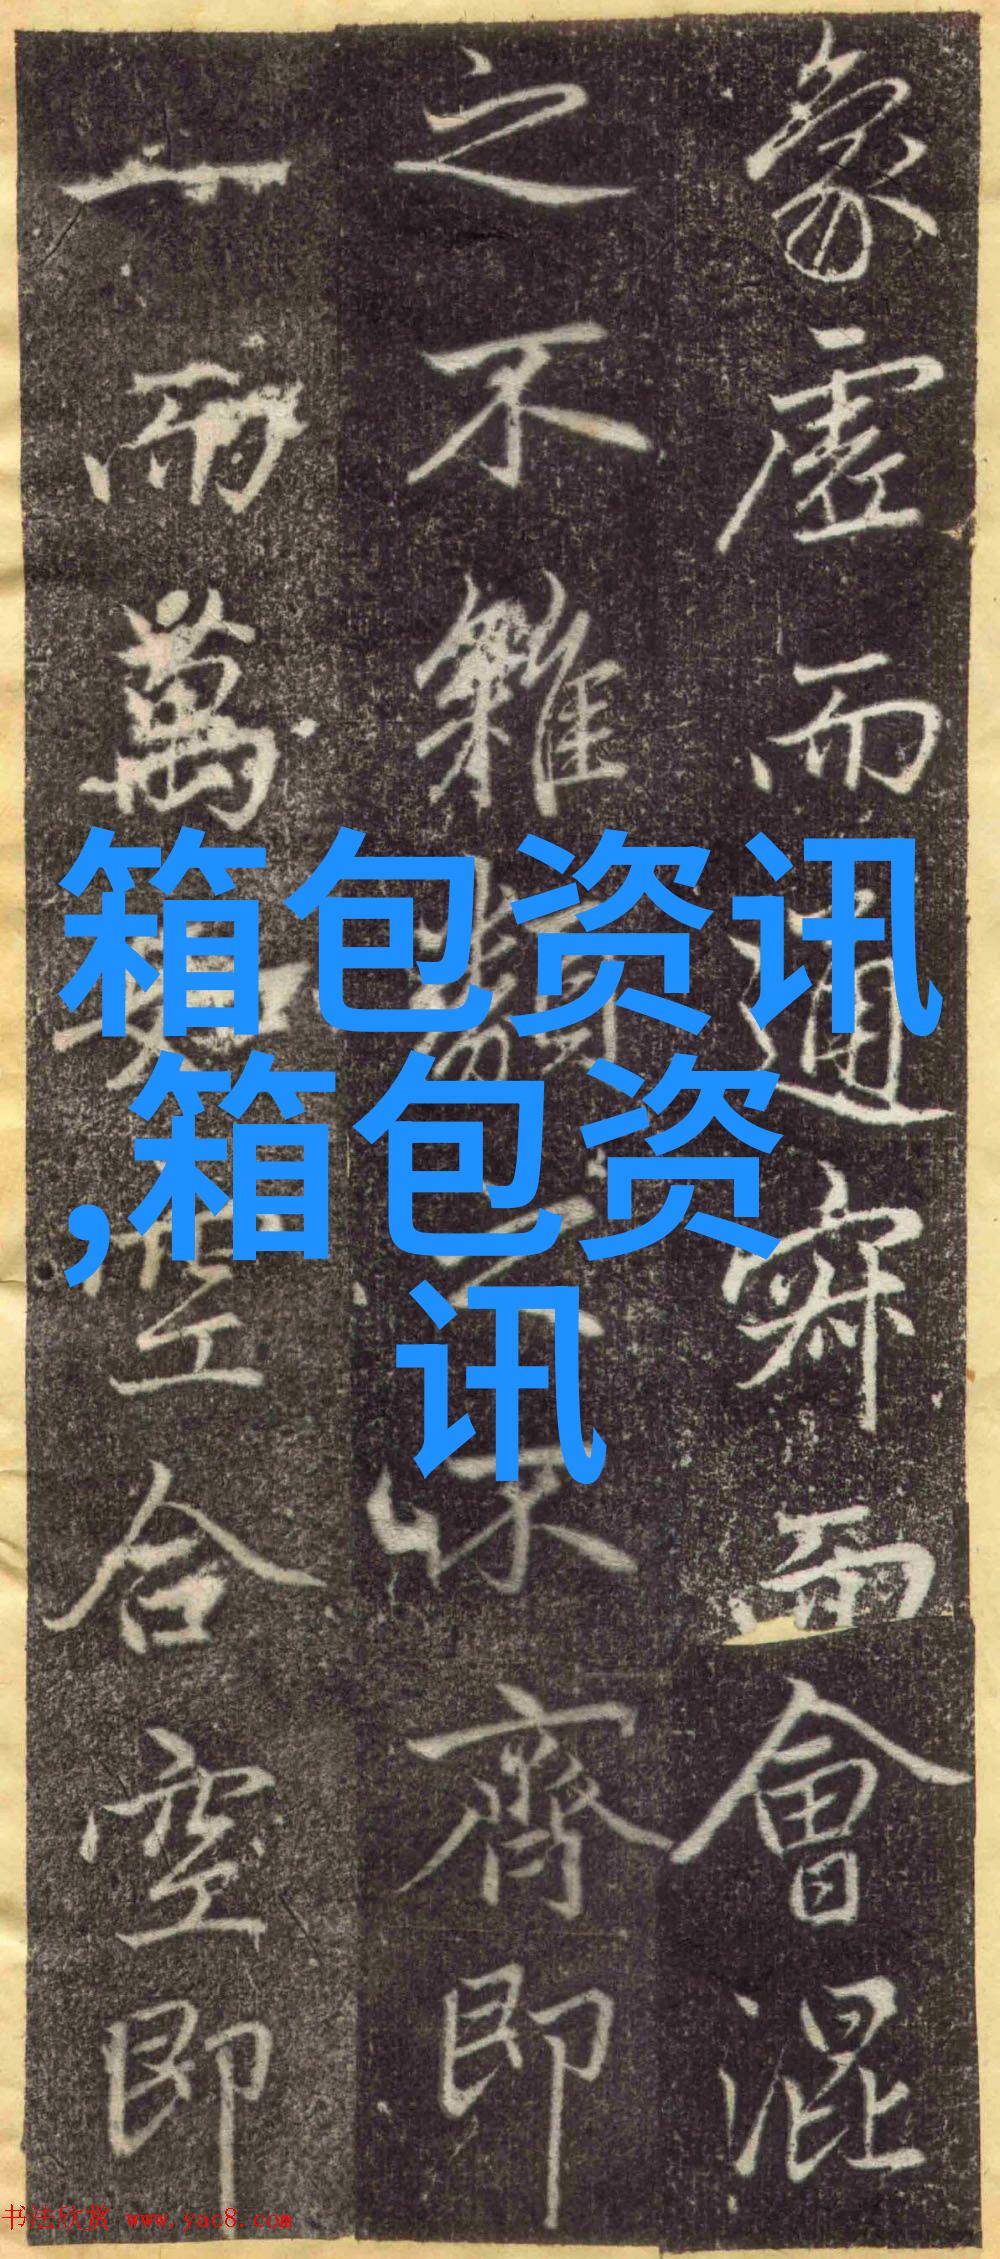 象虛而通寂而會混
之不雜類之不齊即
一而萬如空合空即
箱包资讯
,箱包资
讯
书法欣赏 www.yac8.com